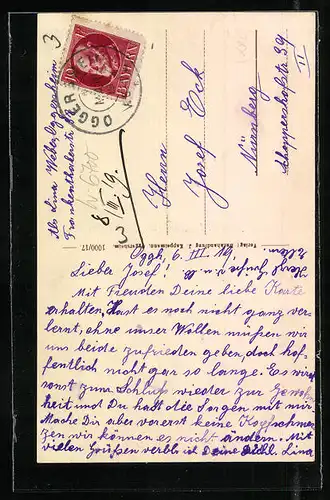 BAYERN
OGGERSHEIM
Abs. Lina Weber Oggersheim
Frankenthalerstr.
3
8/III. 19.
3
Herrn
Josef Eck
Nürnberg
Schoppershofstr. 39
II
Verlag: Buchhandlung J. Koppelmann, Oggersheim. 1000/17
Oggh, 6. III. 19.
Lieber Josef!
Mit Freuden Deine liebe Karte
erhalten, Hast es noch nicht ganz ver-
lernt, ohne unser Wollen müßen wir
uns beide zufrieden geben, doch hof-
fentlich nicht gar so lange. Es wird
sonst zum Schluß wieder zur Gewohn
heit und Du hast die Sorgen mit mir.
Mache Dir aber vorerst keine Kopfschmer-
zen wir können es nicht ändern. Mit
vielen Grüßen verbl. ist Deine Lina